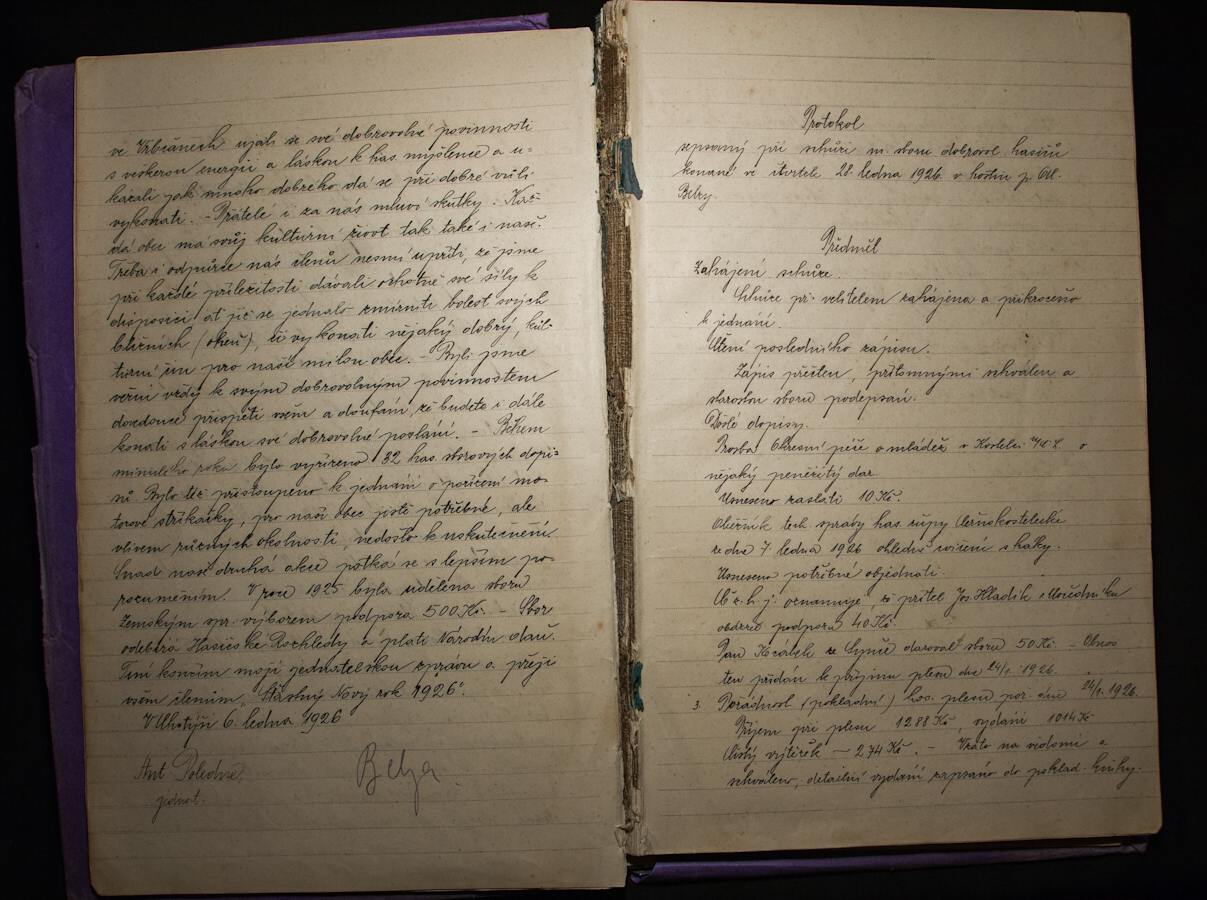 ve Vrbčanech ujali se své dobrovolné povinnosti
s veškerou energií a láskou k has. myšlence a u-
kázali jak mnoho dobrého dá se při dobré vůli
vykonati. - Přátelé i za nás mluví skutky. Kaž-
dá obec má svůj kulturní život tak také i naše.
Třeba i odpůrce nás členů nesmí upříti, že jsme
při každé příležitosti dávali ochotně své síly k
disposici ať jíž se jednalo zmírniti bolest svých
bližních (oheň), či vykonati nějaký dobrý, kul-
turní čin pro naši milou obec. - Byli jsme
věrni vždy k svým dobrovolným povinnostem
dovedouce přispěti všem a doufám, že budete i dále
konati s láskou své dobrovolné poslání. - Během
minulého roku bylo vyřízeno 32 has. sborových dopi-
sů. Bylo též přistoupeno k jednání o pořízení mo-
torové stříkačky, pro naši obec jistě potřebné, ale
vlivem různých okolností, nedošlo k uskutečnění.
Snad naše druhá akce potká se s lepším po-
rozuměním. V roce 1925 byla udělena sboru
Zemským spr. výborem podpora 500 Kč. - Sbor
odebírá Hasičské Rozhledy a platí Národní daň.
Tím končím moji jednatelskou zprávu a přeji
všem členům „Šťastný Nový rok 1926".
V Lhotýši 6. ledna 1926
Ant Poledne
jednat.
Belza
Protokol
sepsaný při schůzi m. sboru dobrovol. hasičů
konané ve čtvrtek 28. ledna 1926 v hostinci p. Ol.
Belzy.
Předmět
Zahájení schůze.
Schůze př. velitelem zahájena a přikročeno
k jednání.
Čtení posledního zápisu.
Zápis přečten, přítomnými schválen a
starostou sboru podepsán.
Došlé dopisy.
Prosba Okresní péče o mládež v Kostelci n/Č.l. o
nějaký peněžitý dar
Usneseno zaslati 10 Kč.
Oběžník tech správy has. župy černokostelecké
ze dne 7. ledna 1926 ohledně cvičení s háky.
Usneseno potřebné objednati.
Č.z.h.j. oznamuje, že přítel Jos Hladík
obdržel podporu 40 Kč.
Pan Kozárek ze Synče daroval sboru 50 Kč. - Obnos
ten přidán k příjmu plesu dne 24/1. 1926.
3. Pořádnost (pokladní) has. plesu poř. dne 24/1. 1926.
Příjem při plesu 1288 Kč, vydání 1014 Kč
čistý výtěžek - 274 Kč. - Vzato na vědomí a
schváleno, detailní vydání zapsáno do poklad. knihy.